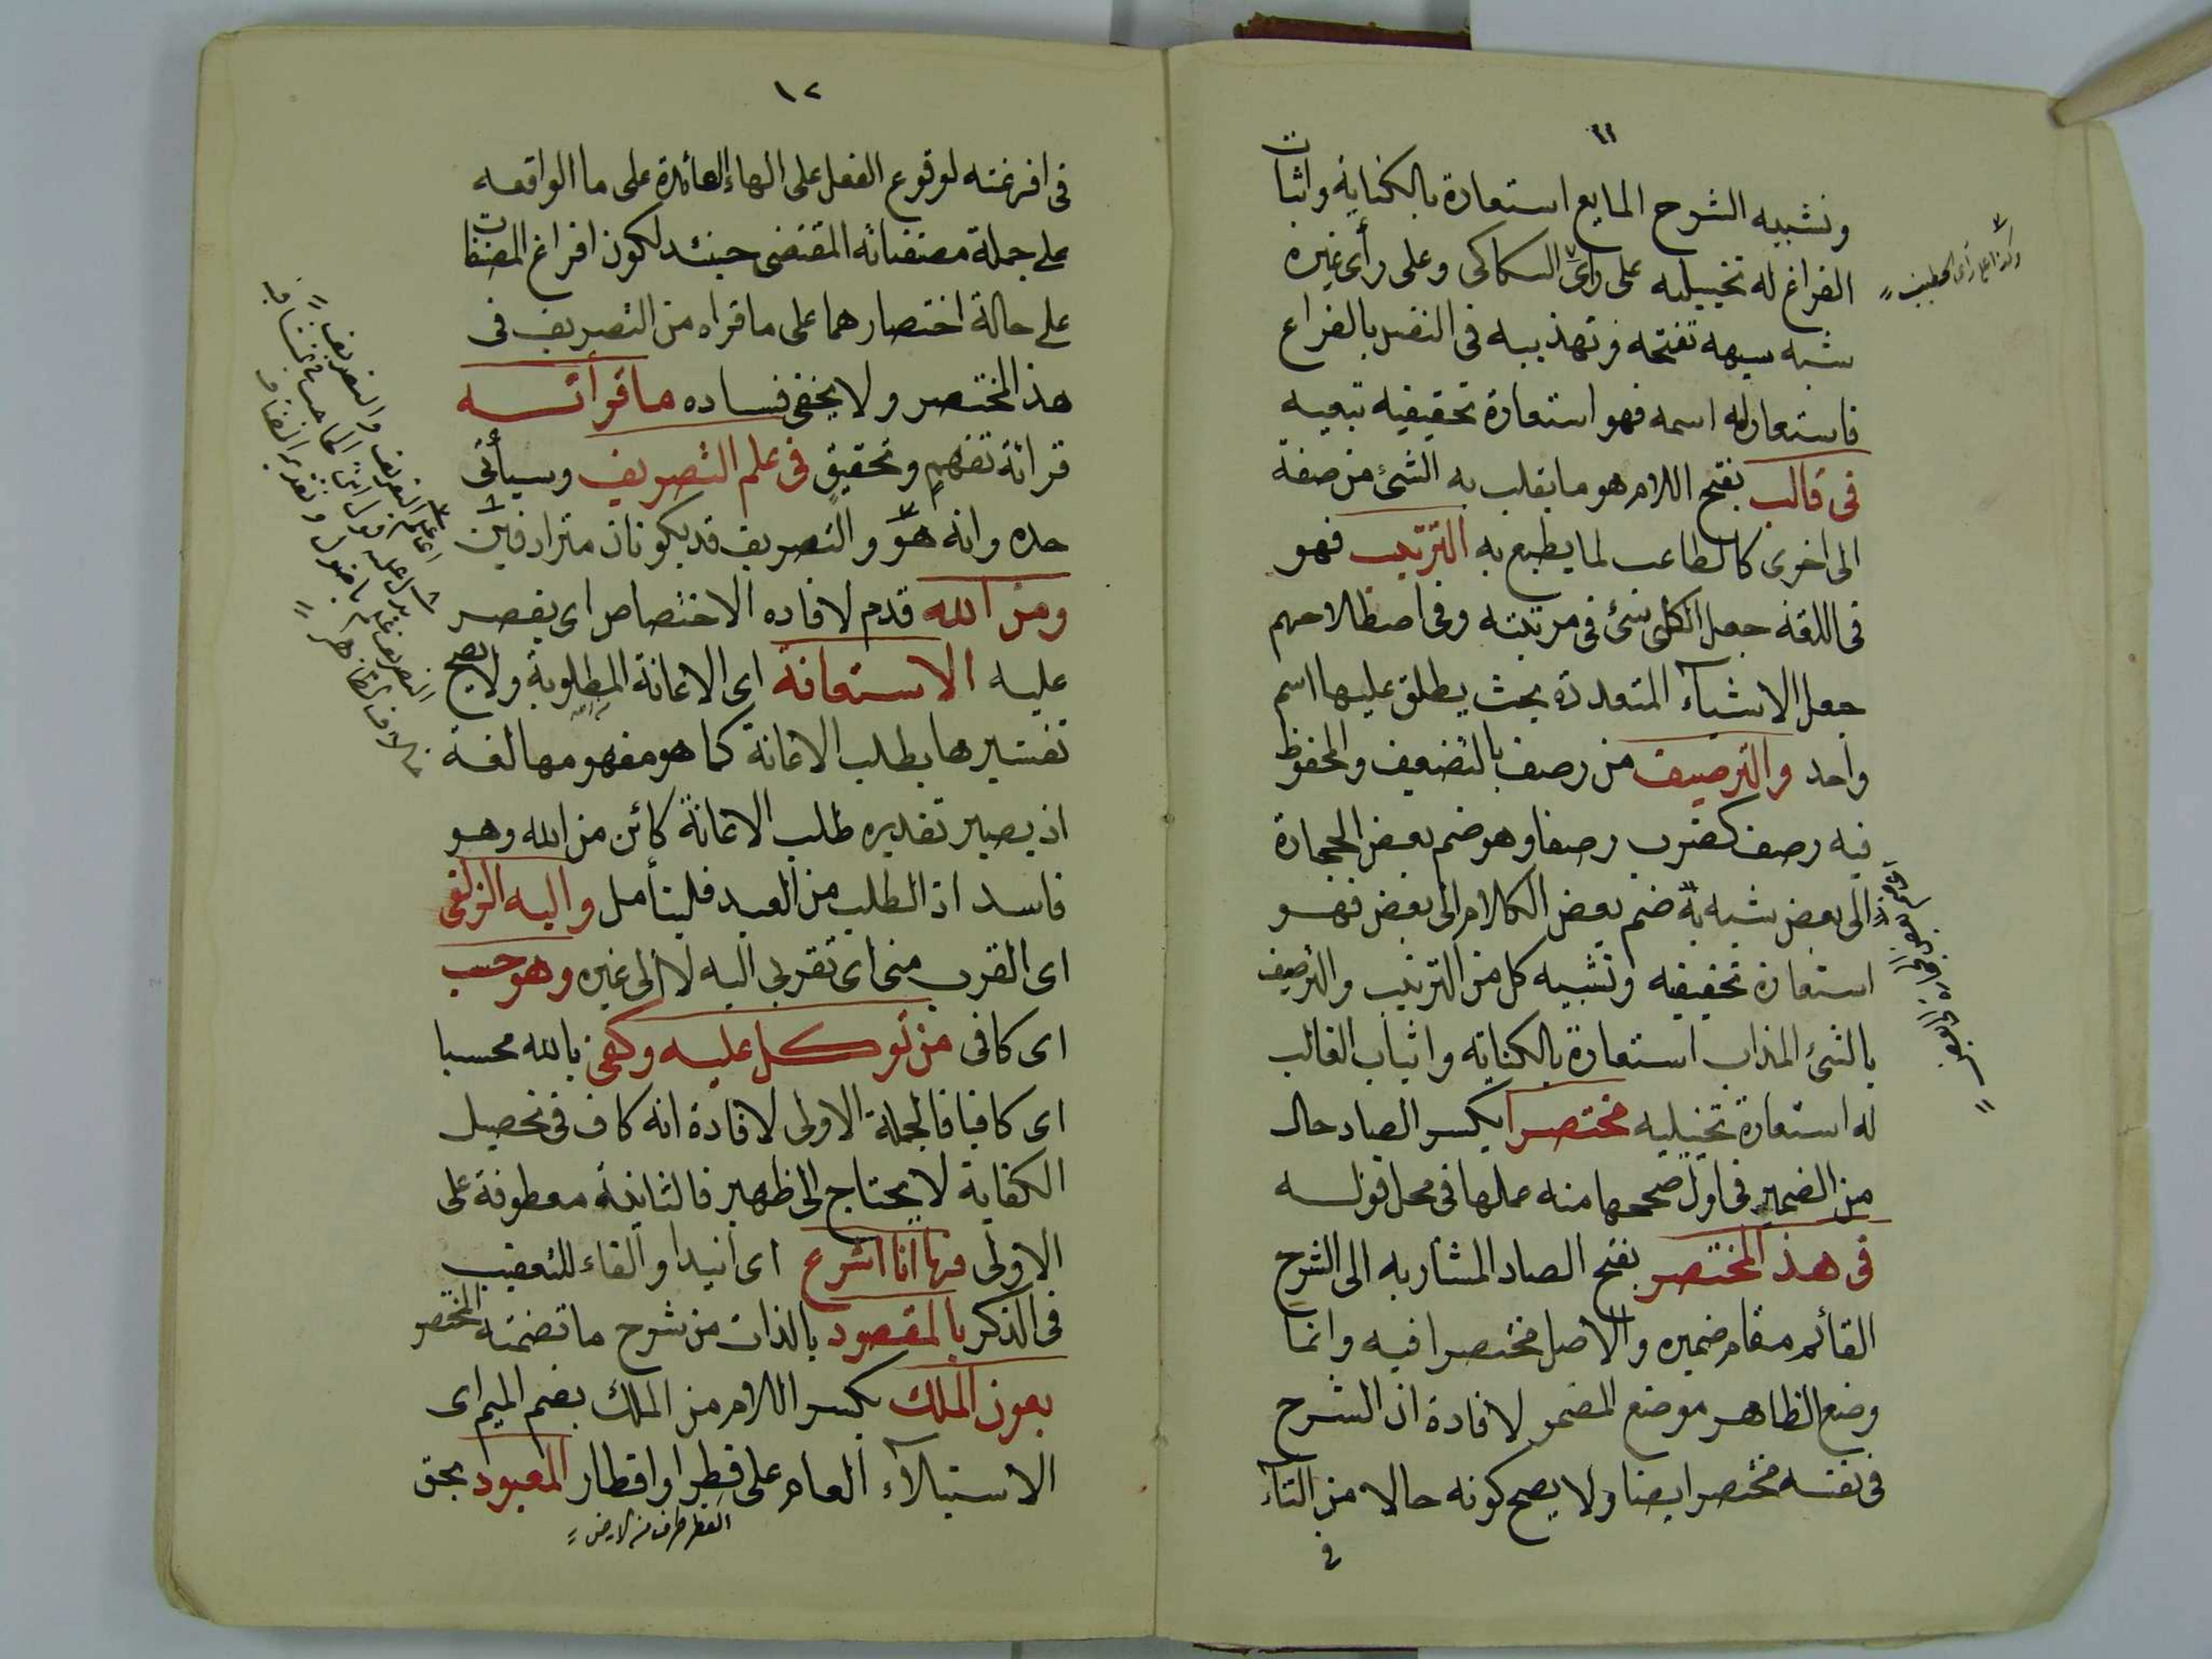 ١١
وتشبيه الشرح المايع استعارة بالكناية واثبات
الفراغ له تخييليه على رأى السكاكى وعلى رأى غيره
شبه سبهه تفتحه وتهذيبه فى النفس بالفراغ
فاستعار له اسمه فهو استعارة تحقيقيه تبعيه
فى قالب بفتح اللام هو ما يقلب به الشئ من صفة
الى اخرى كالطاعب لما يطبع به الترتيب فهو
فى اللغة جعل الكل شئ فى مرتبته وفى اصطلاحهم
جعل الاشياء المتعددة بحيث يطلق عليها اسم
واحد والترصيف من رصف بالتضعيف والمحفوظ
فيه رصف كضرب رصفا وهو ضم بعض الحجارة
الى بعض شبه به ضم بعض الكلام الى بعض فهو
استعارة تحقيقيه وتشبيه كل من الترتيب والترصيف
بالشئ المذاب استعارة بالكناية واثبات القالب
له استعارة تخييليه مختصرا بكسر الصاد حال
من الضمير فى اول صححها منه عملها فى محل قوله
فى هذ المختصر بفتح الصاد المشار به الى الشرح
القائم مقام ضميره والاصل مختصرا فيه وانما
وضع الظاهر موضع المضمر لافادة ان الشرح
فى نفسه مختصر ايضا ولا يصح كونه حالا من التاء
فى
وكذا على رأى الخطيب
١٢
فى افرغته لوقوع الفعل على الهاء العائدة على ما الواقعه
على جملة مصنفاته المقتضى حينئذ لكون افراغ المصنفات
على حالة اختصارهما على ما قراه من التصريف فى
هذ المختصر ولا يخفى فساده ما قرأته
قرائة تفهم وتحقيق فى علم التصريف وسيأتى
حده وانه هو والتصريف قد يكونان مترادفين
ومن الله قدم لافاده الاختصاص اى يقصر
عليه الاستعانة اى الاعانة المطلوبة ولا يصح
تفسيرها بطلب الاعانة كما هو مفهومها لغة
اذ يصير تقديره طلب الاعانة كائن من الله وهو
فاسد اذ الطلب من العبد فليتأمل واليه الزلفى
اى القرب منى اى تقربى اليه لا الى غيره وهو حسب
اى كافى من توكل عليه وكفى بالله محسبا
اى كافيا فالجملة الاولى لافادة انه كاف فى تحصيل
الكفاية لا يحتاج الى ظهير فالثانية معطوفة على
الاولى فها انا اشرع اى ابتدا والفاء للتعقيب
فى الذكر بالمقصود بالذات من شرح ما تضمنه المختصر
بعون الملك بكسر اللام من الملك بضم الميم اى
الاستيلاء العام على قطر او اقطار المعبود بحق
القطر طرف من الارض